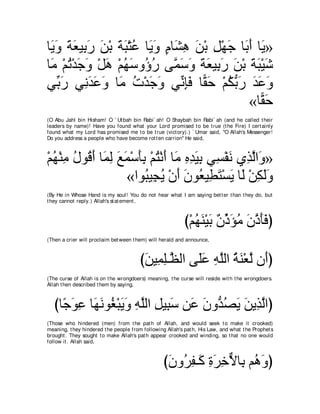 «يَا أَبَا جَهْلِ بْنَ هِشَامٍ وَيَا عُتْبَةُ بْنَ رَبِيعَةَ وَيَا
شَيْبَةُ بْنَ رَبِيعَةَ وَسَمَّى رُؤُوسَهُمْ هَلْ وَجَدْتُمْ مَا
وَعَدَ رَبُّكُمْ حَقًّا فَإِنِّي وَجَدْتُ مَا وَعَدَنِي رَبِّي
حَقًّا»
(O Abu Jahl bin Hisham! O `Utbah bin Rabi`ah! O Shaybah bin Rabi`ah (and he called their
leaders by name)! Have you found what your Lord promised to be true (the Fire) I certainly
found what my Lord has promised me to be true (victory).) `Umar said, "O Allah's Messenger!
Do you address a people who have become rotten carrion'' He said,
«وَالَّذِي نَفْسِي بِيَدِهِ مَا أَنْتُمْ بِأَسْمَعَ لِمَا أَقُولُ مِنْهُمْ
وَلَكِنْ لَا يَسْتَطِيعُونَ أَنْ يُجِيبُوا»
(By He in Whose Hand is my soul! You do not hear what I am saying better than they do, but
they cannot reply.) Allah's statement,
(فَأَذَّنَ مُؤَذِّنٌ بَيْنَهُمْ)
(Then a crier will proclaim between them) will herald and announce,
(أَن لَّعْنَةُ اللَّهِ عَلَى الظَّـلِمِينَ)
(The curse of Allah is on the wrongdoers) meaning, the curse will reside with the wrongdoers.
Allah then described them by saying,
(الَّذِينَ يَصُدُّونَ عَن سَبِيلِ اللَّهِ وَيَبْغُونَهَا عِوَجًا)
(Those who hindered (men) from the path of Allah, and would seek to make it crooked)
meaning, they hindered the people from following Allah's path, His Law, and what the Prophets
brought. They sought to make Allah's path appear crooked and winding, so that no one would
follow it. Allah said,
(وَهُم بِالأٌّخِرَةِ كَـفِرُونَ)